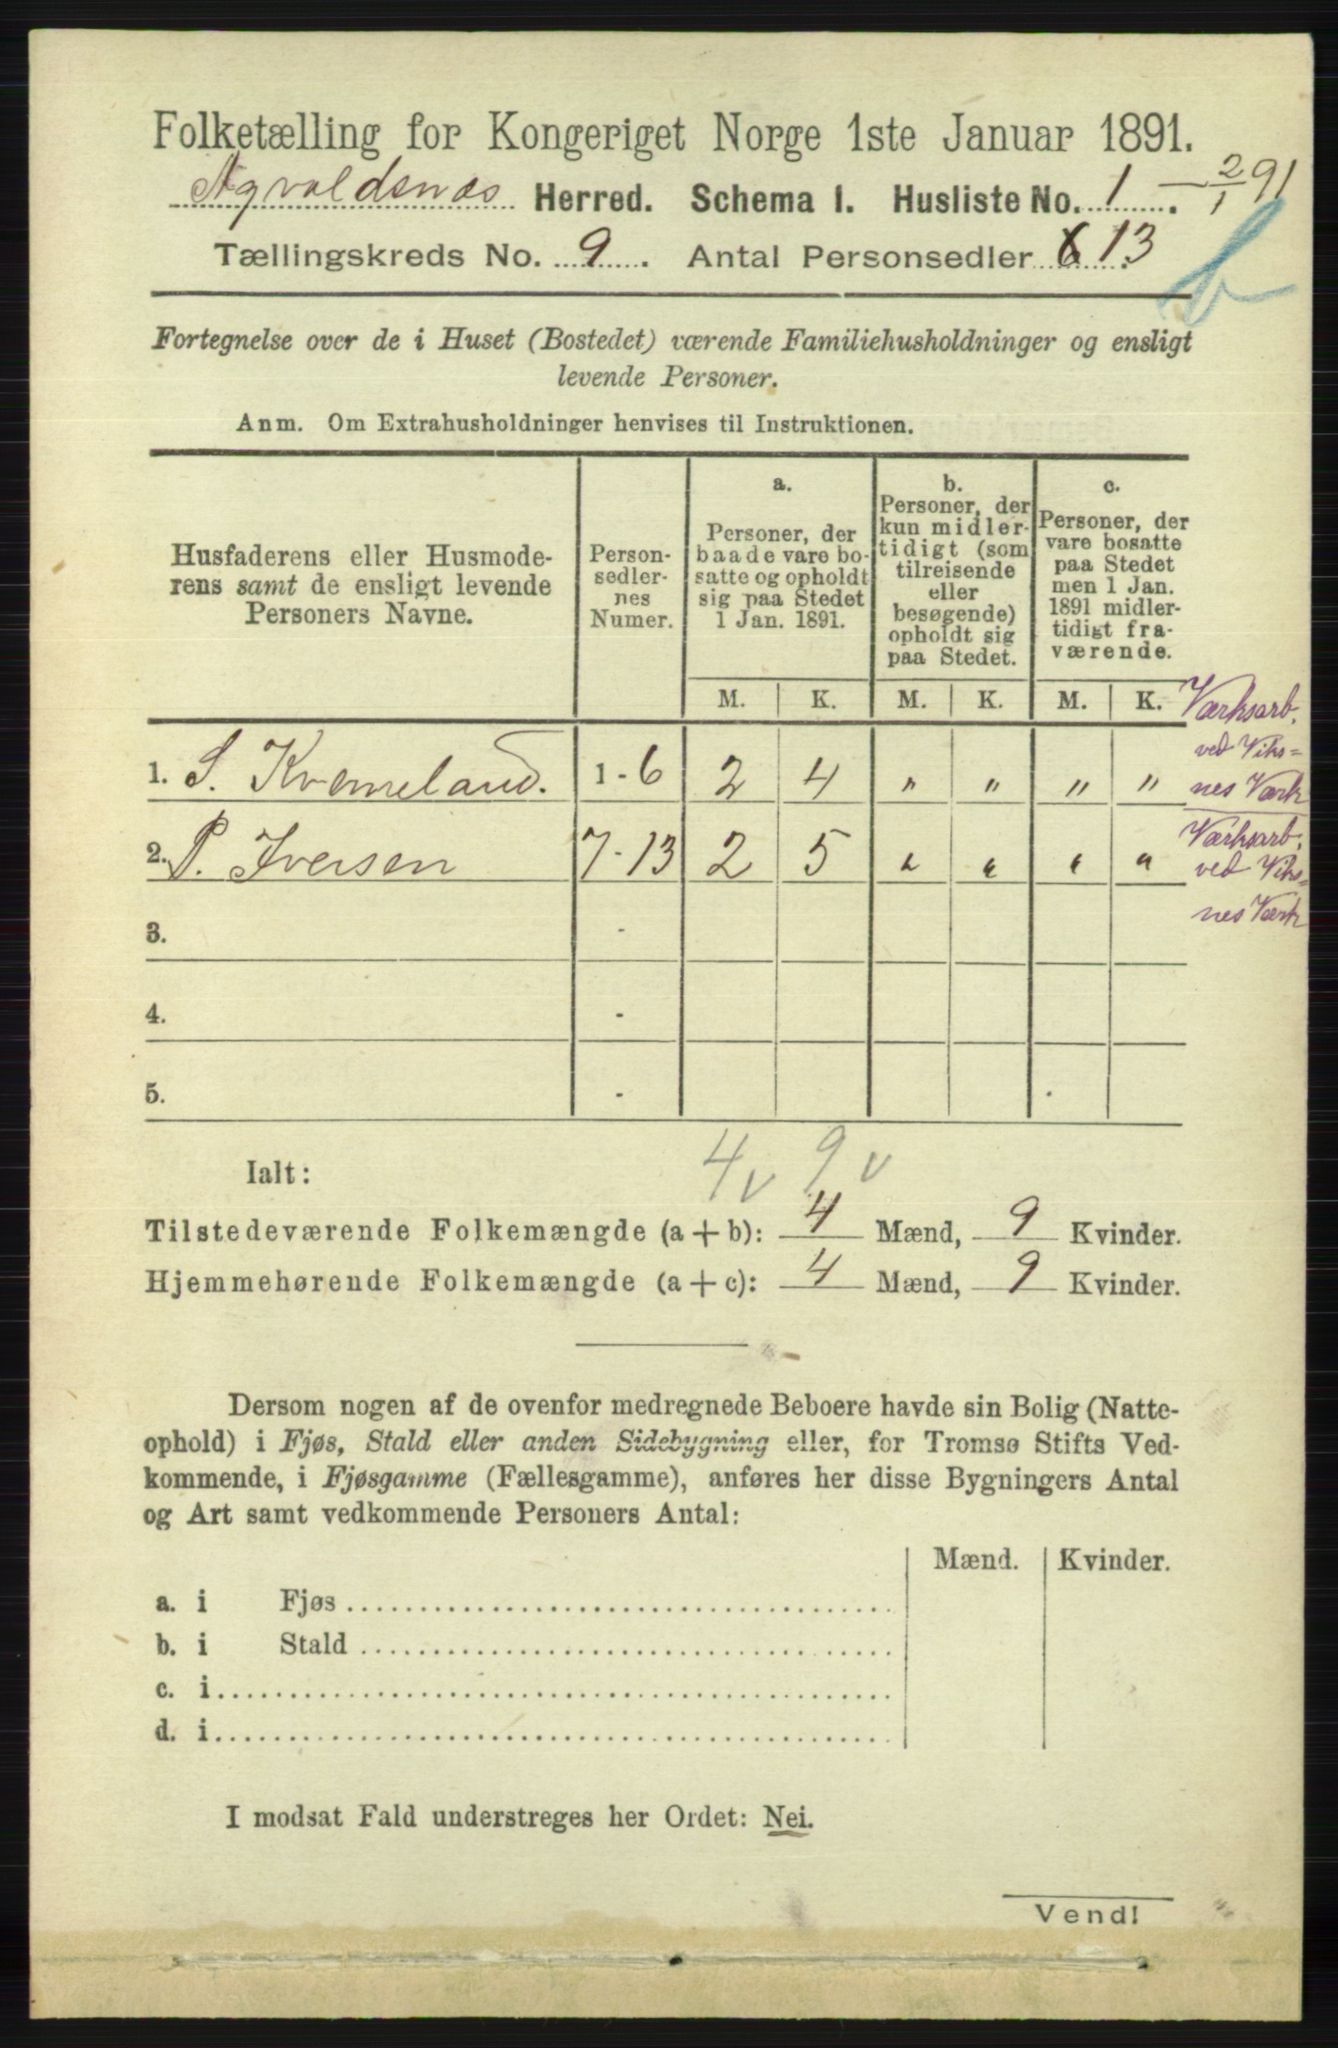 Folketælling for Kongeriget Norge 1ste Januar 1891.
Agvaldsnæs Herred. Schema 1. Husliste No. 1. — 2/1 91
Tællingskreds No. 9. Antal Personsedler 6 13.
b
Fortegnelse over de i Huset (Bostedet) værende Familiehusholdninger og ensligt
levende Personer.
Anm. Om Extrahusholdninger henvises til Instruktionen.
Husfaderens eller Husmode-
rens samt de ensligt levende
Personers Navne.
Person-
sedler-
nes
Numer.
a.
Personer, der
baade vare bo-
satte og opholdt
sig paa Stedet
1 Jan. 1891.
b.
Personer, der
kun midler-
tidigt (som
tilreisende
eller
besøgende)
opholdt sig
paa Stedet.
c.
Personer, der
vare bosatte
paa Stedet
men 1 Jan.
1891 midler-
tidigt fra-
værende.
M. K. M. K. M. K.
1. S. Kvemeland. 1 - 6 2 4 " " " "
Værksarb.
ved Vihs-
nes Værk
2. P. Iversen 7 - 13 2 5 " " " "
Værksarb.
ved Vihs-
nes Værk
3. -
4. -
5. -
4 v 9 v
Ialt:
Tilstedeværende Folkemængde (a + b): 4 Mænd, 9 Kvinder.
Hjemmehørende Folkemængde (a + c): 4 Mænd, 9 Kvinder.
Dersom nogen af de ovenfor medregnede Beboere havde sin Bolig (Natte-
ophold) i Fjøs, Stald eller anden Sidebygning eller, for Tromsø Stifts Ved-
kommende, i Fjøsgamme (Fællesgamme), anføres her disse Bygningers Antal
og Art samt vedkommende Personers Antal:
Mænd. Kvinder.
a. i Fjøs
b. i Stald
c. i
d. i
I modsat Fald understreges her Ordet: Nei.
Vend!